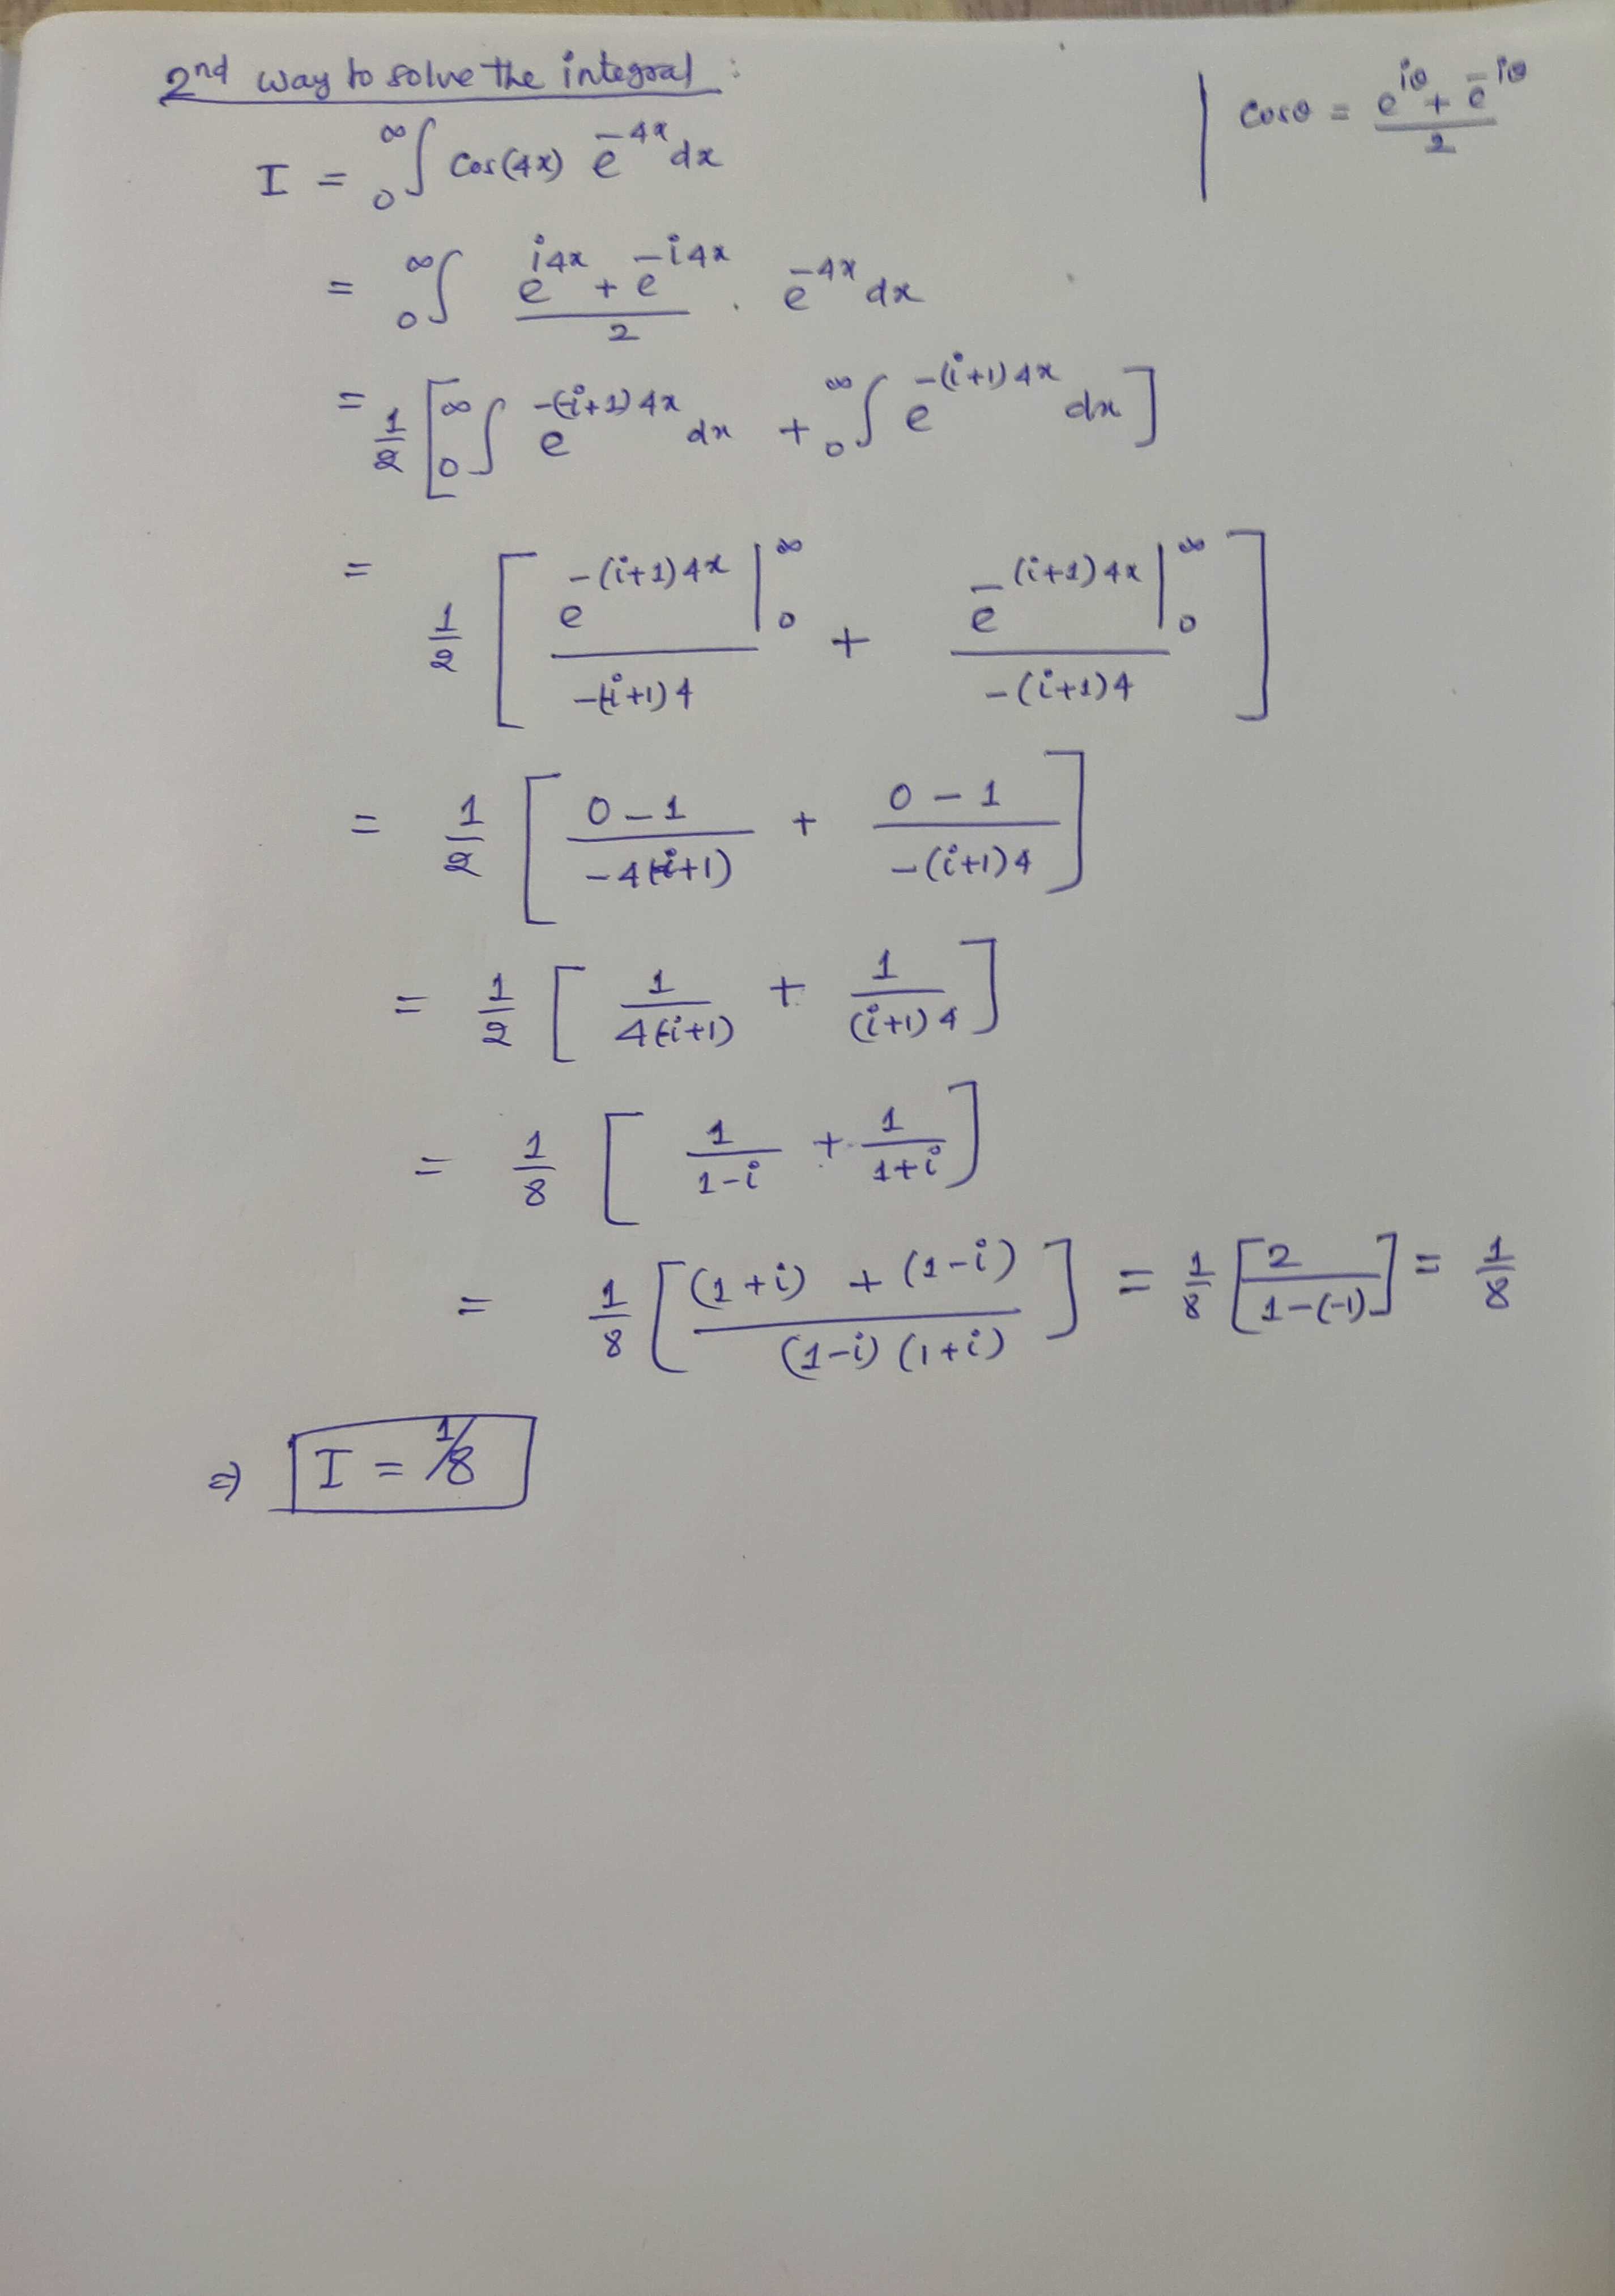 2nd way to solve the integral :
I = ₀^∞∫ Cos(4x) e^{-4x} dx
| Cosθ = (e^{iθ} + e^{-iθ})/2
= ₀^∞∫ (e^{i4x} + e^{-i4x})/2 . e^{-4x} dx
= 1/2 [ ₀^∞∫ e^{-(-i+1)4x} dx + ₀^∞∫ e^{-(i+1)4x} dx ]
= 1/2 [ e^{-(i+1)4x} |₀^∞ / -(-i+1)4 + e^{-(i+1)4x} |₀^∞ / -(i+1)4 ]
= 1/2 [ (0-1)/(-4(-i+1)) + (0-1)/(-(i+1)4) ]
= 1/2 [ 1/(4(-i+1)) + 1/((i+1)4) ]
= 1/8 [ 1/(1-i) + 1/(1+i) ]
= 1/8 [ ((1+i) + (1-i))/((1-i)(1+i)) ] = 1/8 [ 2/(1-(-1)) ] = 1/8
⇒ I = 1/8